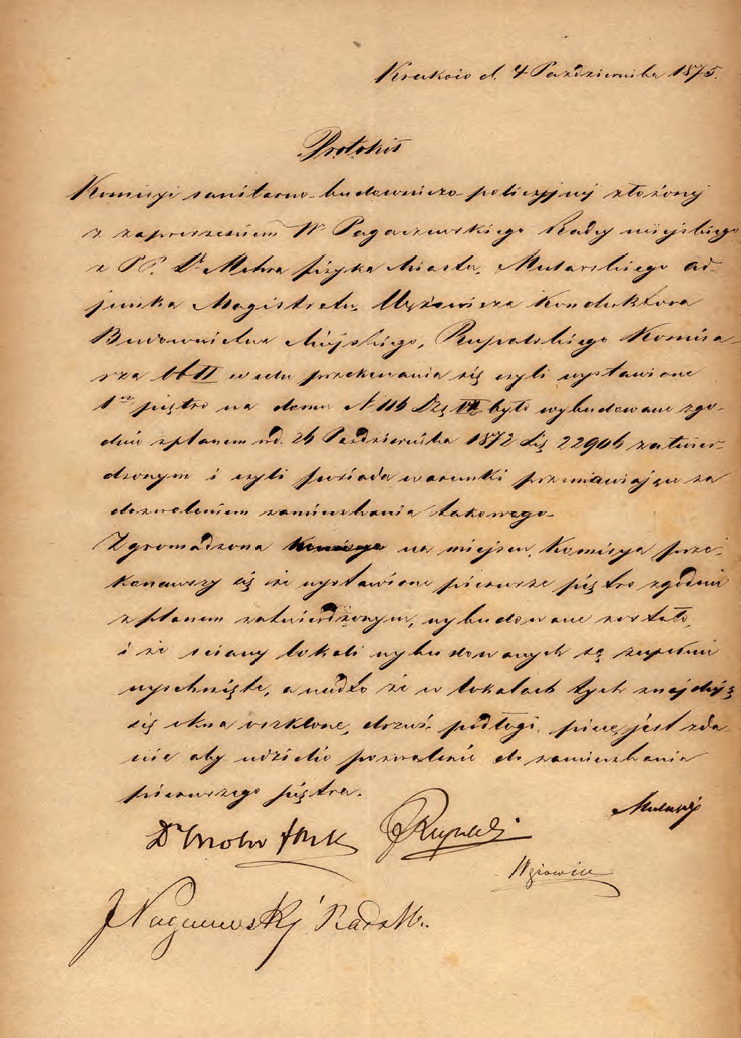 Kraków d. 4 Października 1875.
Protokół
Komisyi sanitarno-budowniczo policyjnej złożonej
z zaproszeniem W Pagaczewskiego Radcy miejskiego
z PP. Dr Mohra fizyka Miasta, Mularskiego ad-
junkta Magistratu, Wężowicza Konduktora
Budownictwa Miejskiego, Rupalskiego Komisa-
rza w celu przekonania się czyli wystawione
1sze piętro na domu N 116 Dz VII było wybudowane zgo-
dnie z planem z d. 26 Października 1872 Lz 22906 zatwier-
dzonym i czyli posiada warunki przemawiające za
dozwoleniem zamieszkania takowego.
Zgromadzona na miejscu Komisya prze-
konawszy się że wystawione pierwsze piętro zgodnie
z planem zatwierdzonym, wybudowane zostało,
i że ściany lokali wybudowanych są zupełnie
wyschnięte, a nadto że w lokalach tych znajdują
się okna oszklone, drzwi, podłogi, piece, jest zda-
nia aby udzielić pozwolenie do zamieszkania
pierwszego piętra.
Dr Mohr